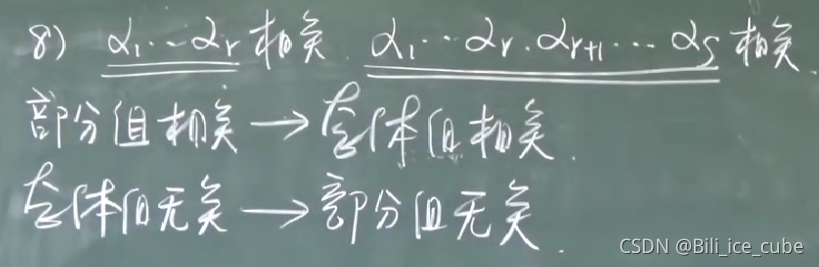 8) α₁…αᵣ 相关 α₁…αᵣ.αᵣ₊₁…αₛ 相关.
部分组相关→整体组相关.
整体组无关→部分组无关.
CSDN @Bili_ice_cube